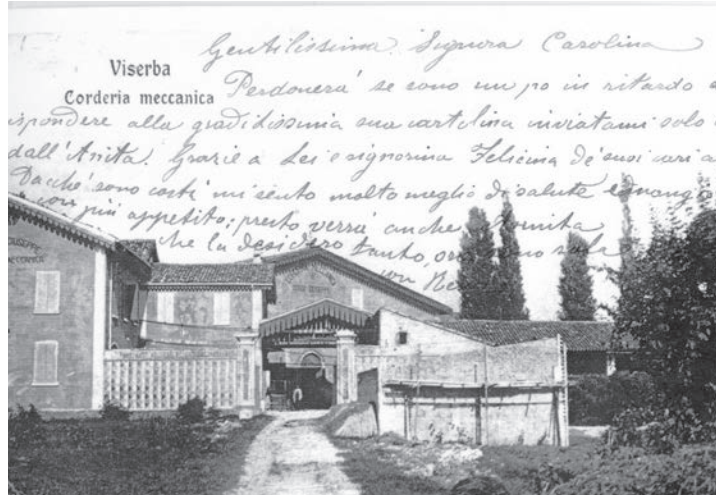 Gentilissima Signora Carolina
Viserba
Corderia meccanica
Perdonerà se sono un po in ritardo a
rispondere alla gradidissima sua cartolina inviatami solo
dall'Anita. Grazie a Lei e signorina Felicina de' suoi cari a
Dacchè sono costì mi sento molto meglio di salute e mangio
con più appetito; presto verrà anche
che la desidero tanto, sono sola
con
GIUSEPPE
MECCANICA